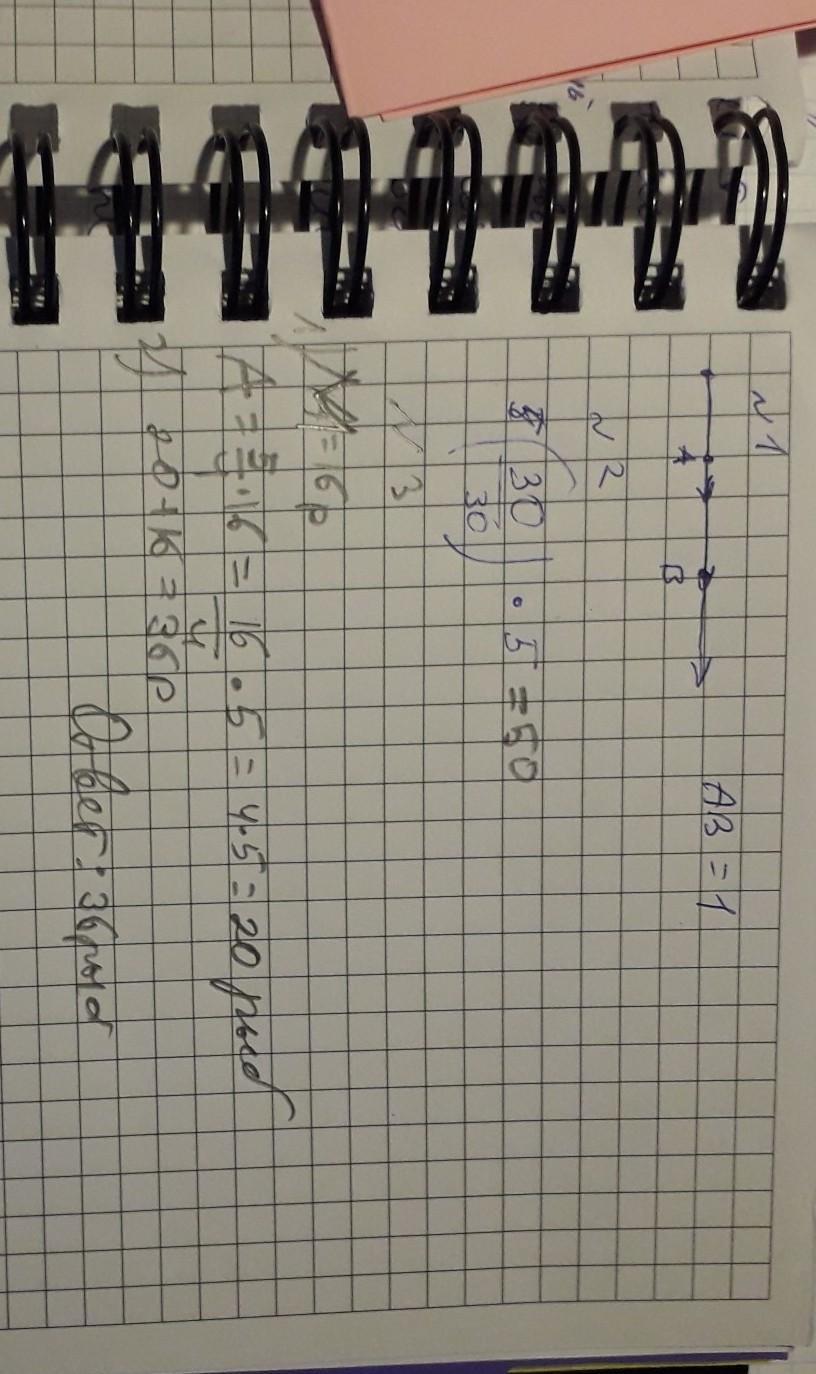 №1
A B AB = 1
№2
(30/30) · 5 = 50
№3
1) = 16 р
A = 5/4 · 16 = 16/4 · 5 = 4 · 5 = 20 рыб
2) 20 + 16 = 36 р
Ответ: 36 рыб